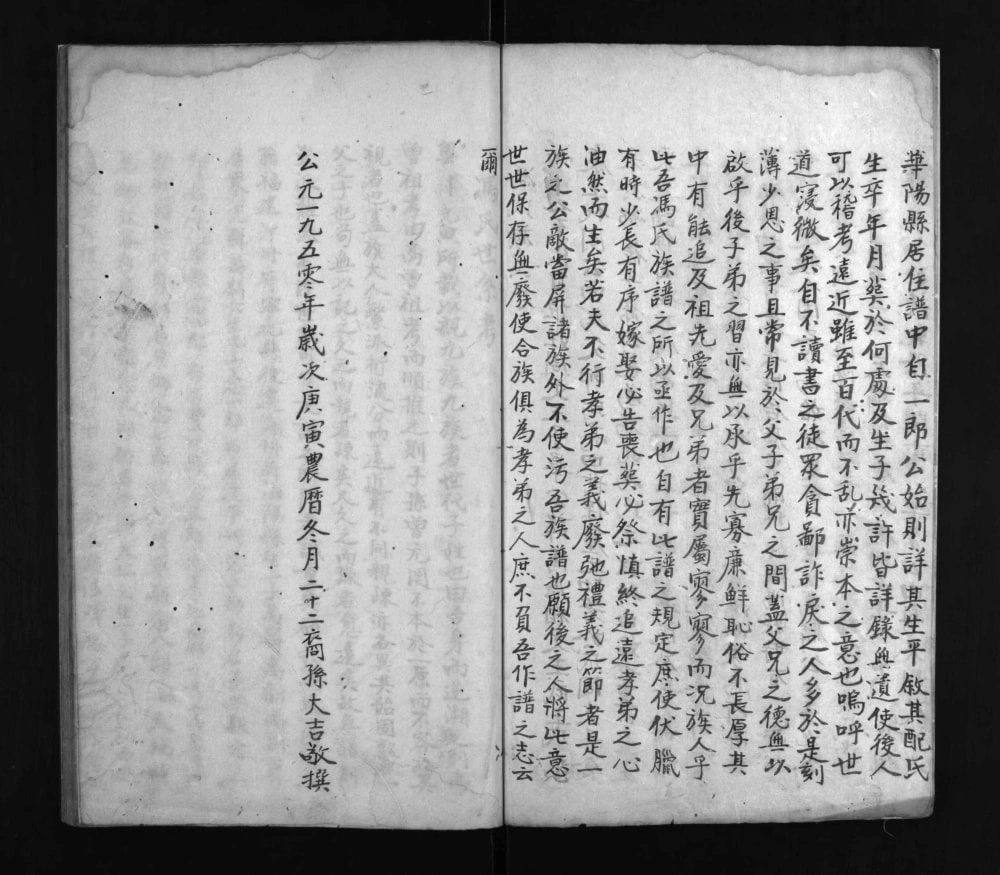 華陽縣居住譜中自一郎公始則詳其生平敘其配氏
生卒年月葬於何處及生子幾許皆詳錄無遺使後人
可以稽考遠近雖至百代而不乱亦崇本之意也嗚呼世
道寖微矣自不讀書之徒眾貪鄙詐戾之人多於是刻
薄少恩之事且常見於父子弟兄之間蓋父兄之德無以
啟乎後子弟之習亦無以承乎先寡廉鮮恥俗不長厚其
中有能追及祖先愛及兄弟者實屬寥寥而況族人乎
此吾馮氏族譜之所以亟作也自有此譜之規定庶使伏臘
有時少長有序嫁娶必告喪葬必祭慎終追遠孝弟之心
油然而生矣若夫不行孝弟之義廢弛禮義之節者是一
族之公敵當屏諸族外不使污吾族譜也願後之人將此意
世世保存無廢使合族俱為孝弟之人庶不負吾作譜之志云
爾
公元一九五零年歲次庚寅農曆冬月二十二裔孫大吉敬撰